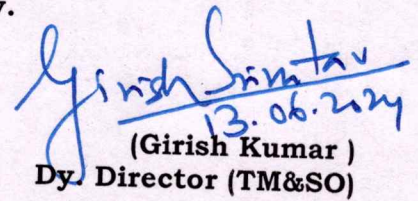 y.
Girish
13.06.2024
(Girish Kumar )
Dy. Director (TM&SO)